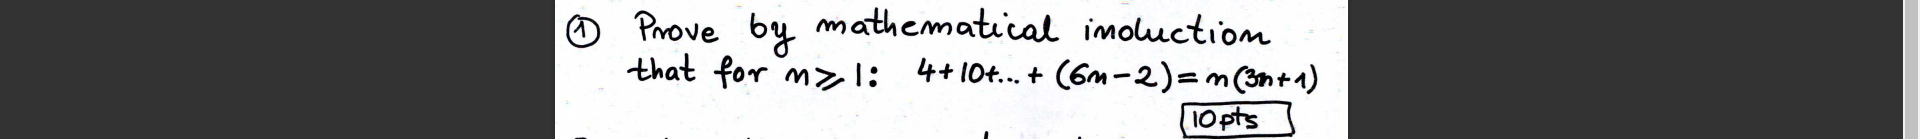 ① Prove by mathematical induction
that for n ⩾ 1: 4+10+...+(6n-2)=n(3n+1)
10pts